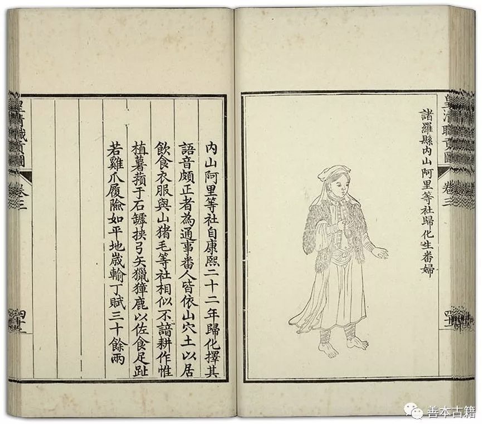 皇清職貢圖
卷三
諸羅縣內山阿里等社歸化生番婦
內山阿里等社自康熙二十二年歸化擇其
語音頗正者為通事番人皆依山穴土以居
飲食衣服與山猪毛等社相似不諳耕作惟
植薯蕷于石罅挾弓矢獵獐鹿以佐食足趾
若雞爪履險如平地歲輸丁賦三十餘兩
皇清職貢圖
卷三
善本古籍